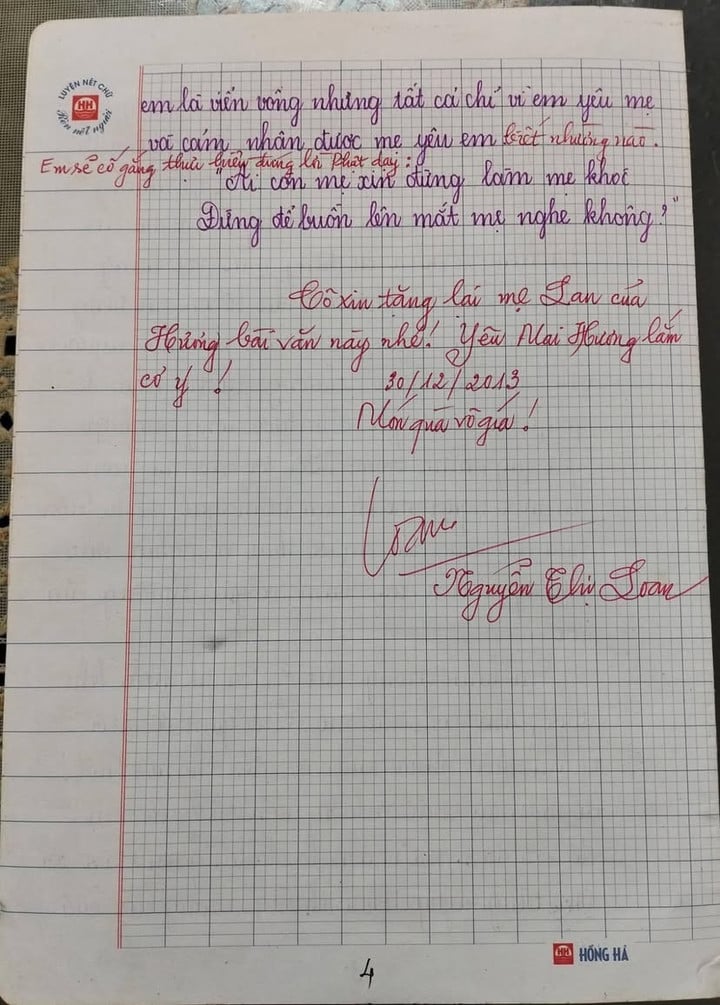 LUYỆN NÉT CHỮ
HH
Rèn nết người
em là viển vông nhưng tất cả chỉ vì em yêu mẹ
và cảm nhận được mẹ yêu em biết nhường nào.
Em sẽ cố gắng thực hiện đúng lời Phật dạy:
"Ai còn mẹ xin đừng làm mẹ khóc
Đừng để buồn lên mắt mẹ nghe không?"
Cô xin tặng lại mẹ Lan của
Hương bài văn này nhé! Yêu Mai Hương lắm
cơ ý!
30/12/2013
Món quà vô giá!
Loan
Nguyễn Thị Loan
HH HỒNG HÀ
4